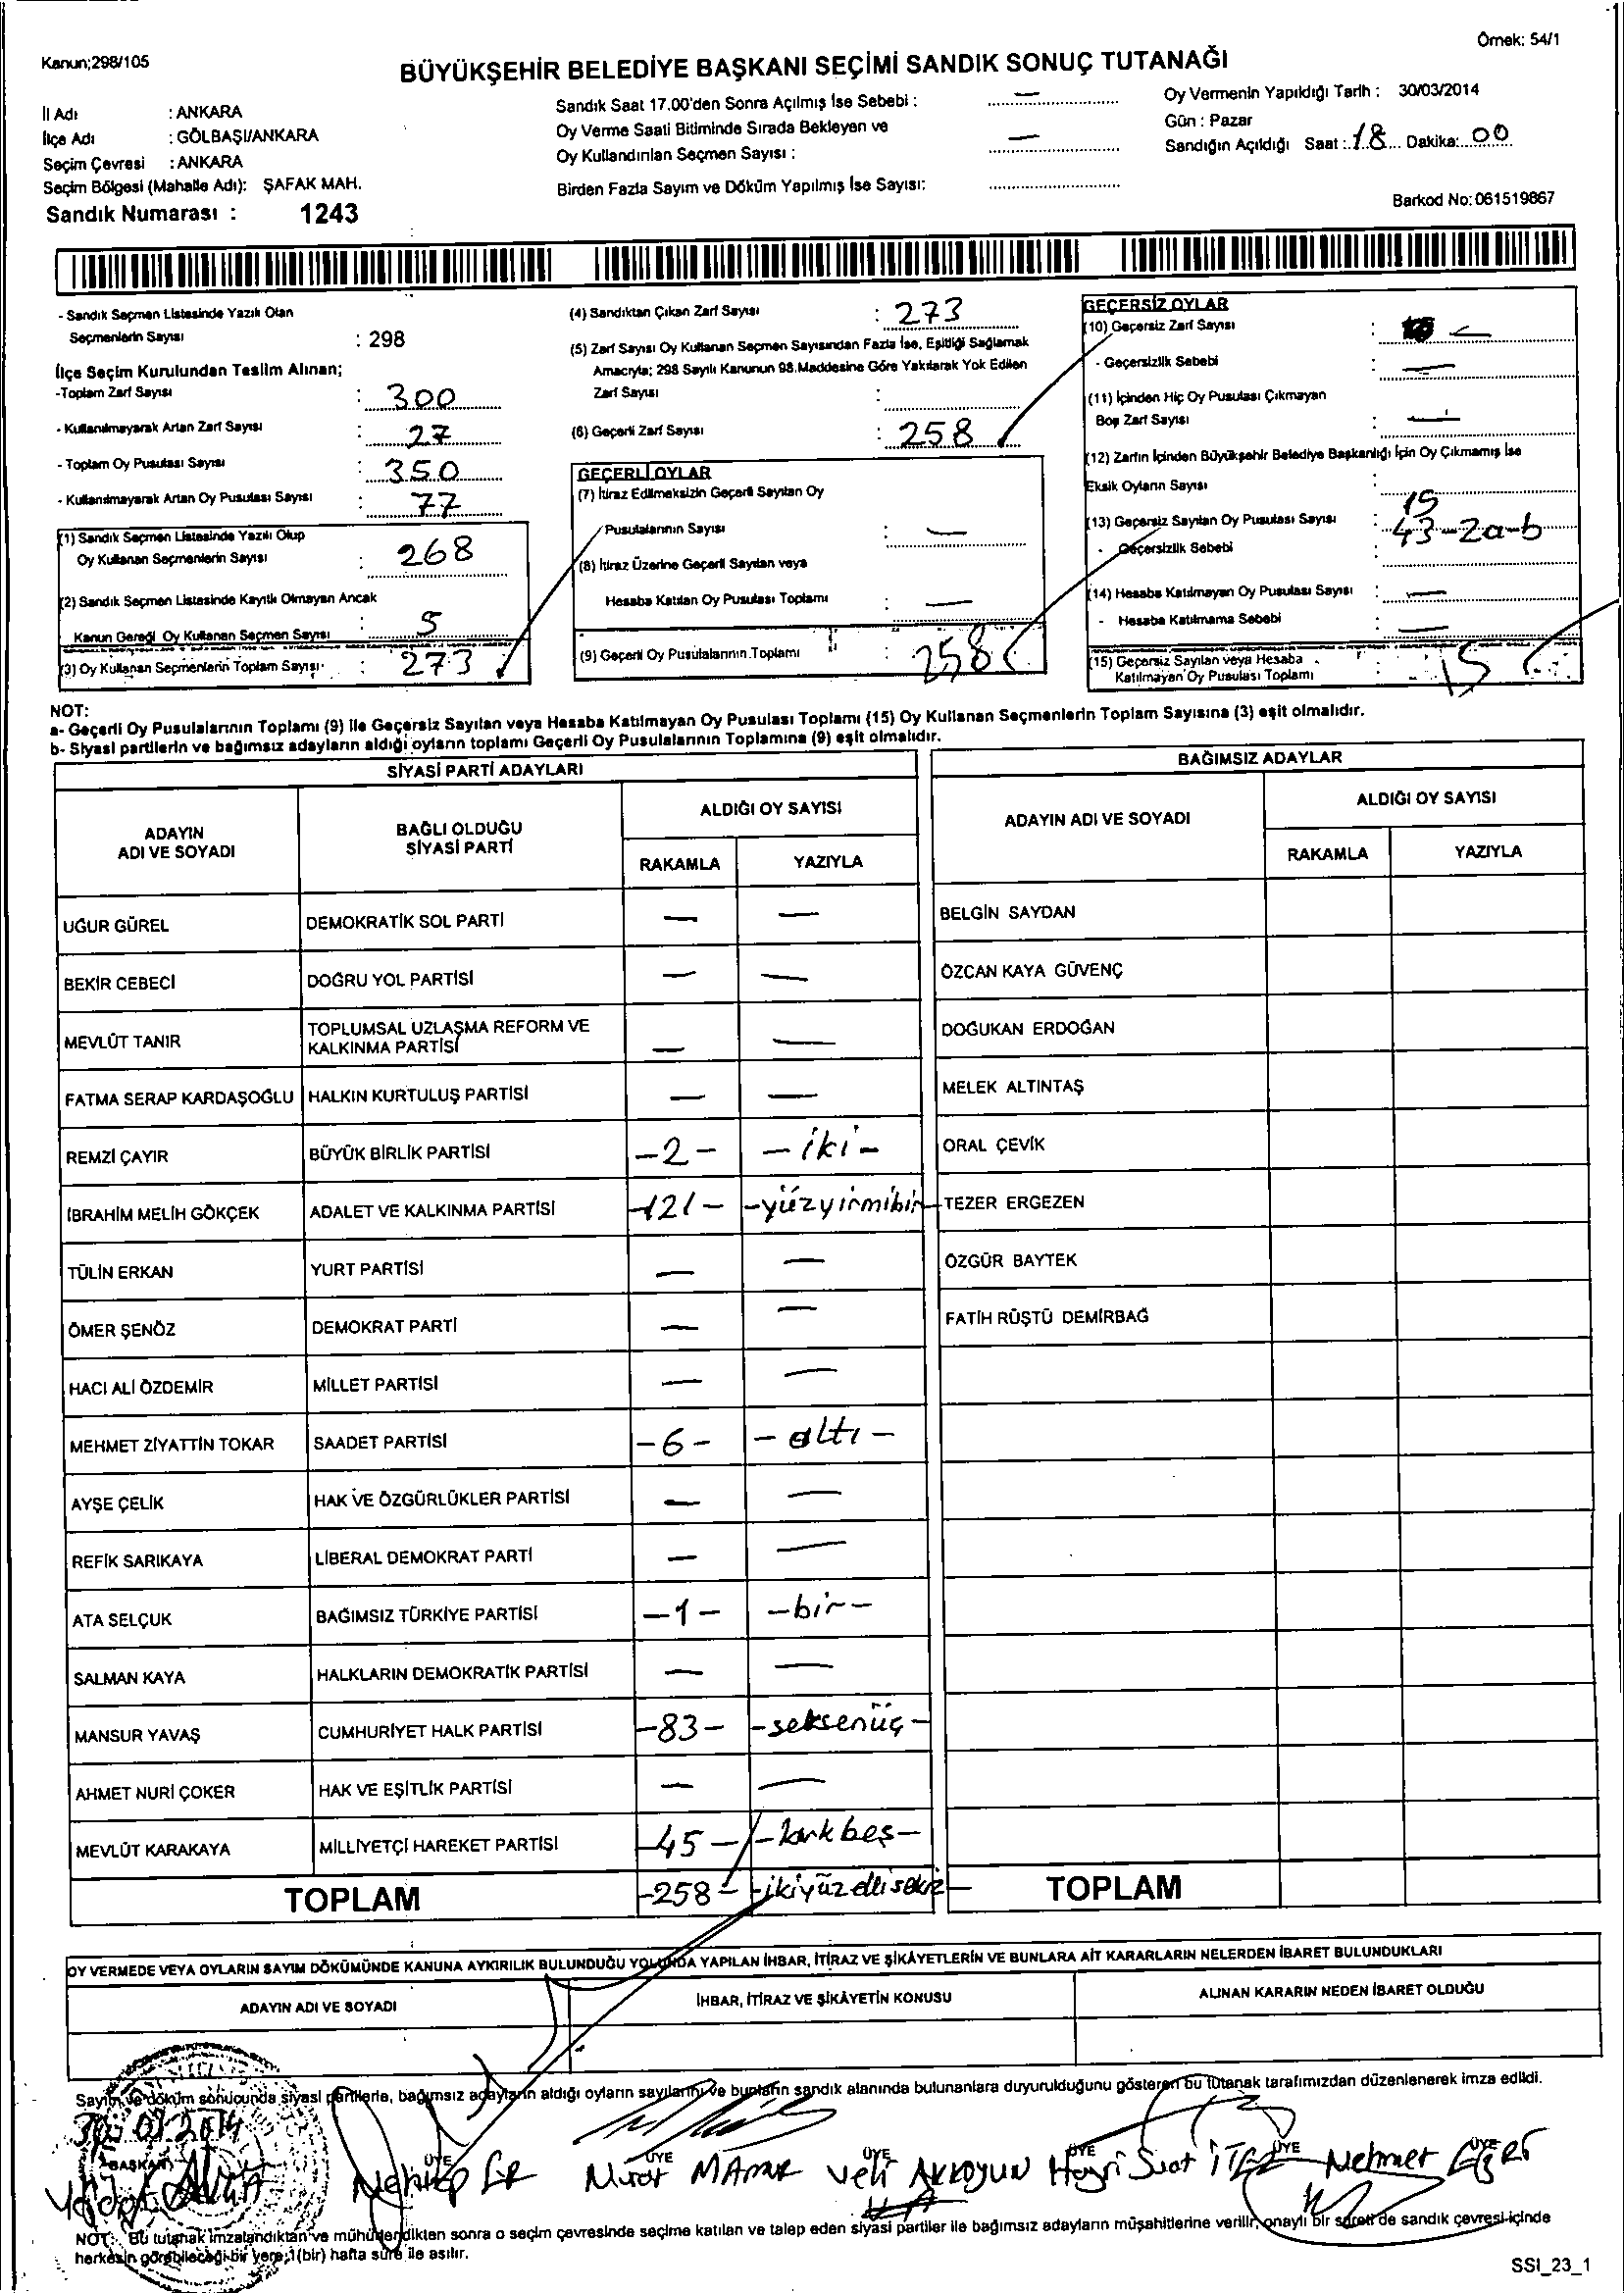 Örnek: 54/1
Kanun;298/105
BÜYÜKŞEHİR BELEDİYE BAŞKANI SEÇİMİ SANDIK SONUÇ TUTANAĞI
İl Adı : ANKARA
İlçe Adı : GÖLBAŞI/ANKARA
Seçim Çevresi : ANKARA
Seçim Bölgesi (Mahalle Adı): ŞAFAK MAH.
Sandık Numarası : 1243
Sandık Saat 17.00'den Sonra Açılmış İse Sebebi : —
Oy Verme Saati Bitiminde Sırada Bekleyen ve
Oy Kullandırılan Seçmen Sayısı : —
Birden Fazla Sayım ve Döküm Yapılmış İse Sayısı:
Oy Vermenin Yapıldığı Tarih : 30/03/2014
Gün : Pazar
Sandığın Açıldığı Saat : 18 Dakika: 00
Barkod No: 061519867
- Sandık Seçmen Listesinde Yazılı Olan
Seçmenlerin Sayısı : 298
İlçe Seçim Kurulundan Teslim Alınan;
-Toplam Zarf Sayısı : 300
- Kullanılmayarak Artan Zarf Sayısı : 27
- Toplam Oy Pusulası Sayısı : 350
- Kullanılmayarak Artan Oy Pusulası Sayısı : 77
(1) Sandık Seçmen Listesinde Yazılı Olup
Oy Kullanan Seçmenlerin Sayısı : 268
(2) Sandık Seçmen Listesinde Kayıtlı Olmayan Ancak
Kanun Gereği Oy Kullanan Seçmen Sayısı : 5
(3) Oy Kullanan Seçmenlerin Toplam Sayısı : 273
(4) Sandıktan Çıkan Zarf Sayısı : 273
(5) Zarf Sayısı Oy Kullanan Seçmen Sayısından Fazla İse, Eşitliği Sağlamak
Amacıyla; 298 Sayılı Kanunun 98.Maddesine Göre Yakılarak Yok Edilen
Zarf Sayısı :
(6) Geçerli Zarf Sayısı : 258
GEÇERLİ OYLAR
(7) İtiraz Edilmeksizin Geçerli Sayılan Oy
Pusulalarının Sayısı : —
(8) İtiraz Üzerine Geçerli Sayılan veya
Hesaba Katılan Oy Pusulası Toplamı : —
(9) Geçerli Oy Pusulalarının Toplamı : 258
GEÇERSİZ OYLAR
(10) Geçersiz Zarf Sayısı : —
- Geçersizlik Sebebi : —
(11) İçinden Hiç Oy Pusulası Çıkmayan
Boş Zarf Sayısı : —
(12) Zarfın İçinden Büyükşehir Belediye Başkanlığı İçin Oy Çıkmamış İse
Eksik Oyların Sayısı :
(13) Geçersiz Sayılan Oy Pusulası Sayısı : 15
- Geçersizlik Sebebi : 43-2a-b
(14) Hesaba Katılmayan Oy Pusulası Sayısı : —
- Hesaba Katılmama Sebebi : —
(15) Geçersiz Sayılan veya Hesaba
Katılmayan Oy Pusulası Toplamı : 15
NOT:
a- Geçerli Oy Pusulalarının Toplamı (9) ile Geçersiz Sayılan veya Hesaba Katılmayan Oy Pusulası Toplamı (15) Oy Kullanan Seçmenlerin Toplam Sayısına (3) eşit olmalıdır.
b- Siyasi partilerin ve bağımsız adayların aldığı oyların toplamı Geçerli Oy Pusulalarının Toplamına (9) eşit olmalıdır.
SİYASİ PARTİ ADAYLARI
ADAYIN ADI VE SOYADI BAĞLI OLDUĞU SİYASİ PARTİ ALDIĞI OY SAYISI
RAKAMLA YAZIYLA
UĞUR GÜREL DEMOKRATİK SOL PARTİ — —
BEKİR CEBECİ DOĞRU YOL PARTİSİ — —
MEVLÜT TANIR TOPLUMSAL UZLAŞMA REFORM VE KALKINMA PARTİSİ — —
FATMA SERAP KARDAŞOĞLU HALKIN KURTULUŞ PARTİSİ — —
REMZİ ÇAYIR BÜYÜK BİRLİK PARTİSİ -2- -iki-
İBRAHİM MELİH GÖKÇEK ADALET VE KALKINMA PARTİSİ -121- -yüzyirmibir-
TÜLİN ERKAN YURT PARTİSİ — —
ÖMER ŞENÖZ DEMOKRAT PARTİ — —
HACI ALİ ÖZDEMİR MİLLET PARTİSİ — —
MEHMET ZİYATTİN TOKAR SAADET PARTİSİ -6- -altı-
AYŞE ÇELİK HAK VE ÖZGÜRLÜKLER PARTİSİ — —
REFİK SARIKAYA LİBERAL DEMOKRAT PARTİ — —
ATA SELÇUK BAĞIMSIZ TÜRKİYE PARTİSİ -1- -bir-
SALMAN KAYA HALKLARIN DEMOKRATİK PARTİSİ — —
MANSUR YAVAŞ CUMHURİYET HALK PARTİSİ -83- -seksenüç-
AHMET NURİ ÇOKER HAK VE EŞİTLİK PARTİSİ — —
MEVLÜT KARAKAYA MİLLİYETÇİ HAREKET PARTİSİ -45- -kırkbeş-
TOPLAM -258- -ikiyüzellisekiz-
BAĞIMSIZ ADAYLAR
ADAYIN ADI VE SOYADI ALDIĞI OY SAYISI
RAKAMLA YAZIYLA
BELGİN SAYDAN
ÖZCAN KAYA GÜVENÇ
DOĞUKAN ERDOĞAN
MELEK ALTINTAŞ
ORAL ÇEVİK
TEZER ERGEZEN
ÖZGÜR BAYTEK
FATİH RÜŞTÜ DEMİRBAĞ
TOPLAM
OY VERMEDE VEYA OYLARIN SAYIM DÖKÜMÜNDE KANUNA AYKIRILIK BULUNDUĞU YOLUNDA YAPILAN İHBAR, İTİRAZ VE ŞİKÂYETLERİN VE BUNLARA AİT KARARLARIN NELERDEN İBARET BULUNDUKLARI
ADAYIN ADI VE SOYADI İHBAR, İTİRAZ VE ŞİKÂYETİN KONUSU ALINAN KARARIN NEDEN İBARET OLDUĞU
Sayım ve döküm sonucunda siyasi partilerle, bağımsız adayların aldığı oyların sayılarını ve bunların sandık alanında bulunanlara duyurulduğunu gösteren bu tutanak tarafımızdan düzenlenerek imza edildi.
30.03.2014
BAŞKAN ÜYE ÜYE ÜYE ÜYE ÜYE
Murat Veli AKKOYUN Hayri Suat Mehmet
NOT: Bu tutanak imzalandıktan ve mühürlendikten sonra o seçim çevresinde seçime katılan ve talep eden siyasi partiler ile bağımsız adayların müşahitlerine verilir, onaylı bir sureti de sandık çevresi içinde
herkesin görebileceği bir yere 1(bir) hafta süre ile asılır.
SSI_23_1